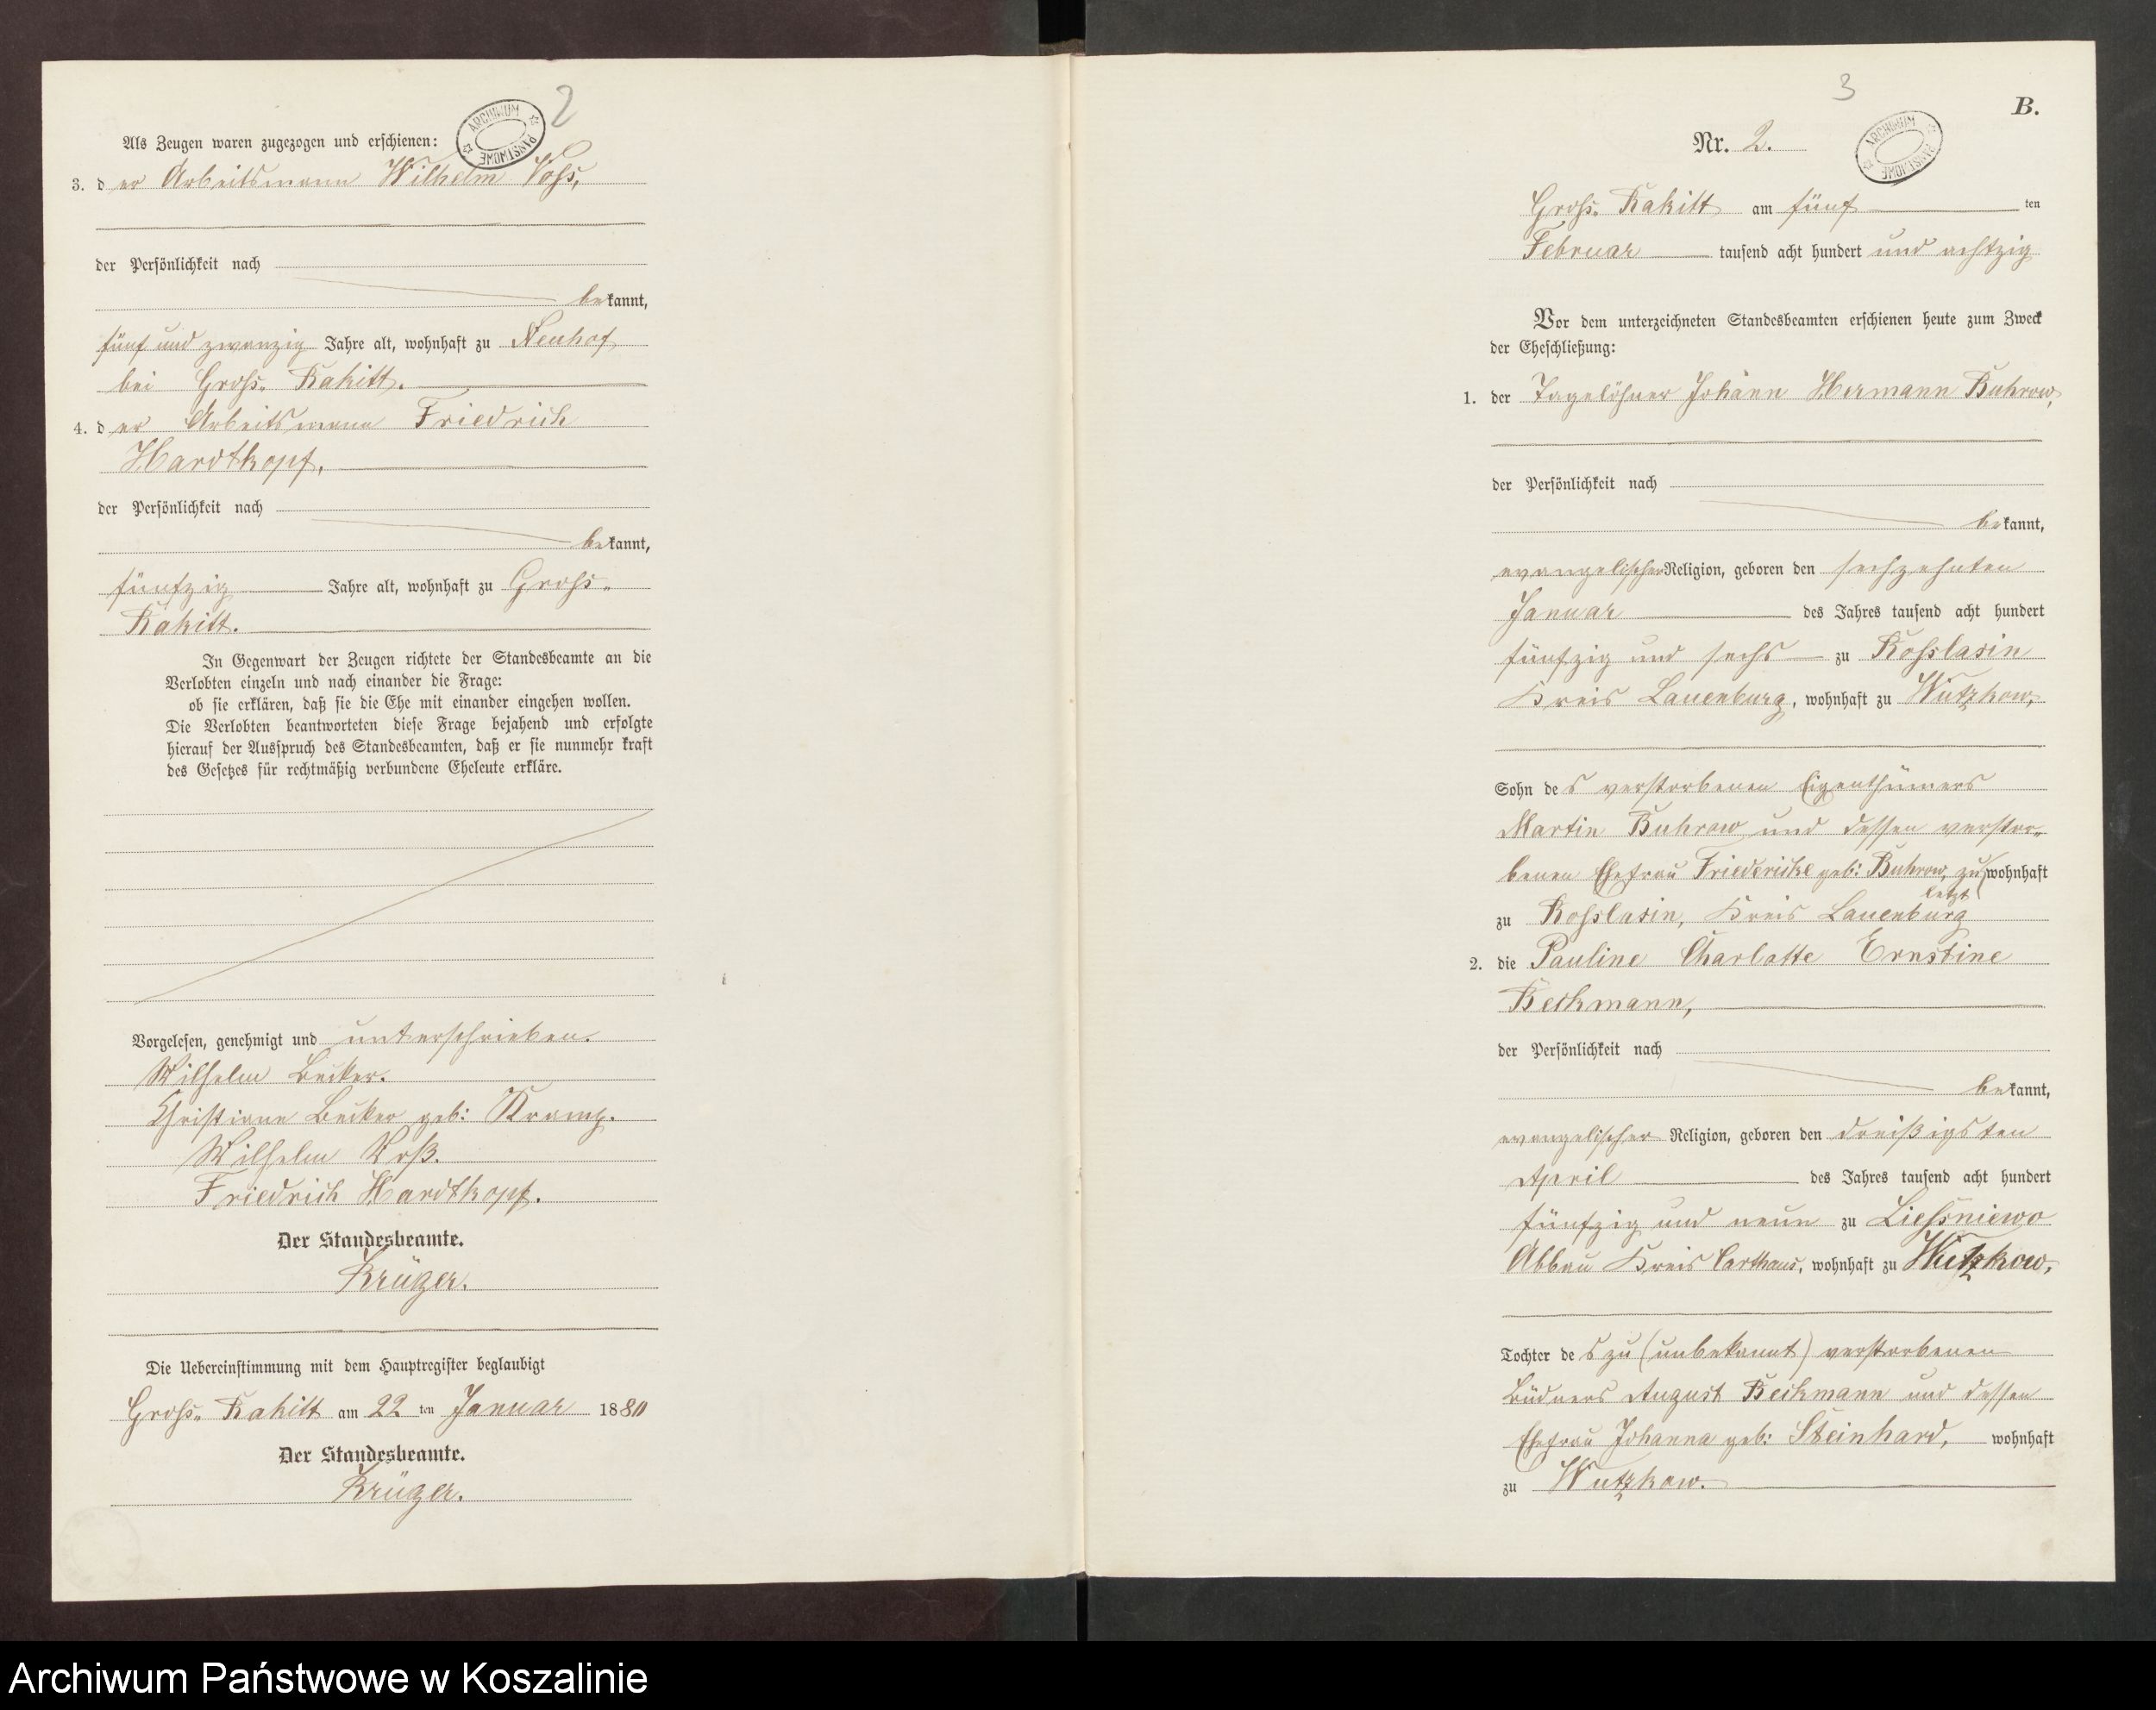 2
ARCHIWUM PAŃSTWOWE
Als Zeugen waren zugezogen und erschienen:
3. der Arbeitsmann Wilhelm Voss,
der Persönlichkeit nach
bekannt,
fünf und zwanzig Jahre alt, wohnhaft zu Neuhof
bei Gross-Rakitt.
4. der Arbeitsmann Friedrich
Hardtkopf,
der Persönlichkeit nach
bekannt,
fünfzig Jahre alt, wohnhaft zu Gross-
Rakitt.
In Gegenwart der Zeugen richtete der Standesbeamte an die
Verlobten einzeln und nach einander die Frage:
ob sie erklären, daß sie die Ehe mit einander eingehen wollen.
Die Verlobten beantworteten diese Frage bejahend und erfolgte
hierauf der Ausspruch des Standesbeamten, daß er sie nunmehr kraft
des Gesetzes für rechtmäßig verbundene Eheleute erkläre.
Vorgelesen, genehmigt und unterschrieben.
Wilhelm Becker.
Christiane Becker geb: Kramp.
Wilhelm Voß.
Friedrich Hardtkopf.
Der Standesbeamte.
Krüger.
Die Uebereinstimmung mit dem Hauptregister beglaubigt
Gross-Rakitt am 22 ten Januar 1880
Der Standesbeamte.
Krüger.
3
B.
ARCHIWUM PAŃSTWOWE
Nr. 2.
Gross-Rakitt am fünf ten
Februar tausend acht hundert und achtzig
Vor dem unterzeichneten Standesbeamten erschienen heute zum Zweck
der Eheschließung:
1. der Tagelöhner Johann Hermann Buhrow,
der Persönlichkeit nach
bekannt,
evangelischer Religion, geboren den sechzehnten
Januar des Jahres tausend acht hundert
fünfzig und sechs zu Rosslasin
Kreis Lauenburg, wohnhaft zu Wutzkow,
Sohn des verstorbenen Eigenthümers
Martin Buhrow und dessen verstor-
benen Ehefrau Friedericke geb: Buhrow, zu wohnhaft
letzt
zu Rosslasin, Kreis Lauenburg
2. die Pauline Charlotte Ernstine
Beckmann,
der Persönlichkeit nach
bekannt,
evangelischer Religion, geboren den dreißigsten
April des Jahres tausend acht hundert
fünfzig und neun zu Liessniewo
Abbau Kreis Carthaus, wohnhaft zu Wutzkow,
Tochter des zu (unbekannt) verstorbenen
Büdners August Beckmann und dessen
Ehefrau Johanna geb: Steinhard, wohnhaft
zu Wutzkow.
Archiwum Państwowe w Koszalinie